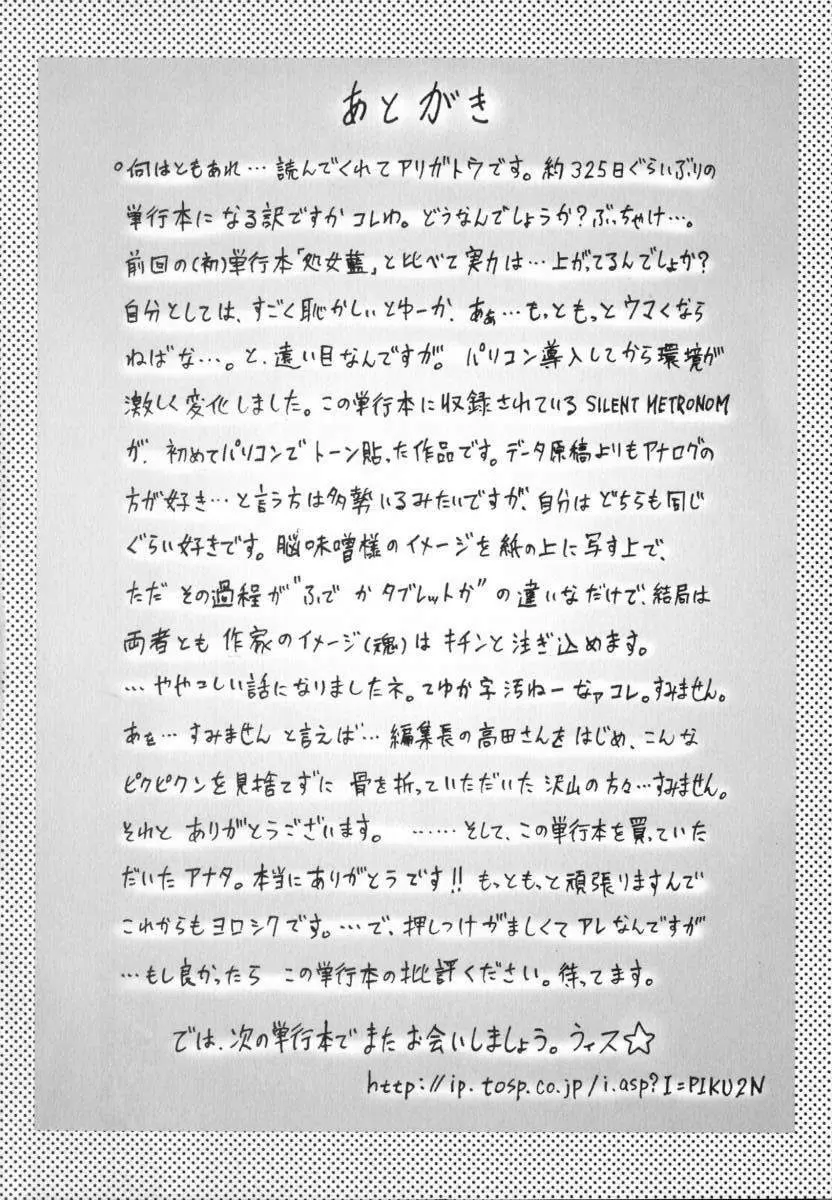 あとがき
○何はともあれ…読んでくれてアリガトウです。約325日ぐらいぶりの
単行本になる訳ですかコレわ。どうなんでしょうか?ぶっちゃけ…。
前回の(初)単行本「処女藍」と比べて実力は…上がってるんでしょか?
自分としては、すごく恥かしいとゆーか、あぁ…もっともっとウマくなら
ねばな…。と、遠い目なんですが。パソコン導入してから環境が
激しく変化しました。この単行本に収録されているSILENT METRONOM
が、初めてパソコンでトーン貼った作品です。データ原稿よりもアナログの
方が好き…と言う方は多勢いるみたいですが、自分はどちらも同じ
ぐらい好きです。脳味噌様のイメージを紙の上に写す上で、
ただその過程が"ふでかタブレットか"の違いなだけで、結局は
両者とも作家のイメージ(魂)はキチンと注ぎ込めます。
…ややこしい話になりましたネ。てゆか字汚ねーなァコレ。すみません。
あぁ…すみませんと言えば…編集長の高田さんをはじめ、こんな
ピクピクンを見捨てずに骨を折っていただいた沢山の方々…すみません。
それとありがとうございます。……そして、この単行本を買っていた
だいたアナタ。本当にありがとうです!!もっともっと頑張りますんで
これからもヨロシクです。…で、押しつけがましくてアレなんですが
…もし良かったらこの単行本の批評ください。待ってます。
では、次の単行本でまたお会いしましょう。ウィス☆
http://ip.tosp.co.jp/i.asp?I=PIKU2N